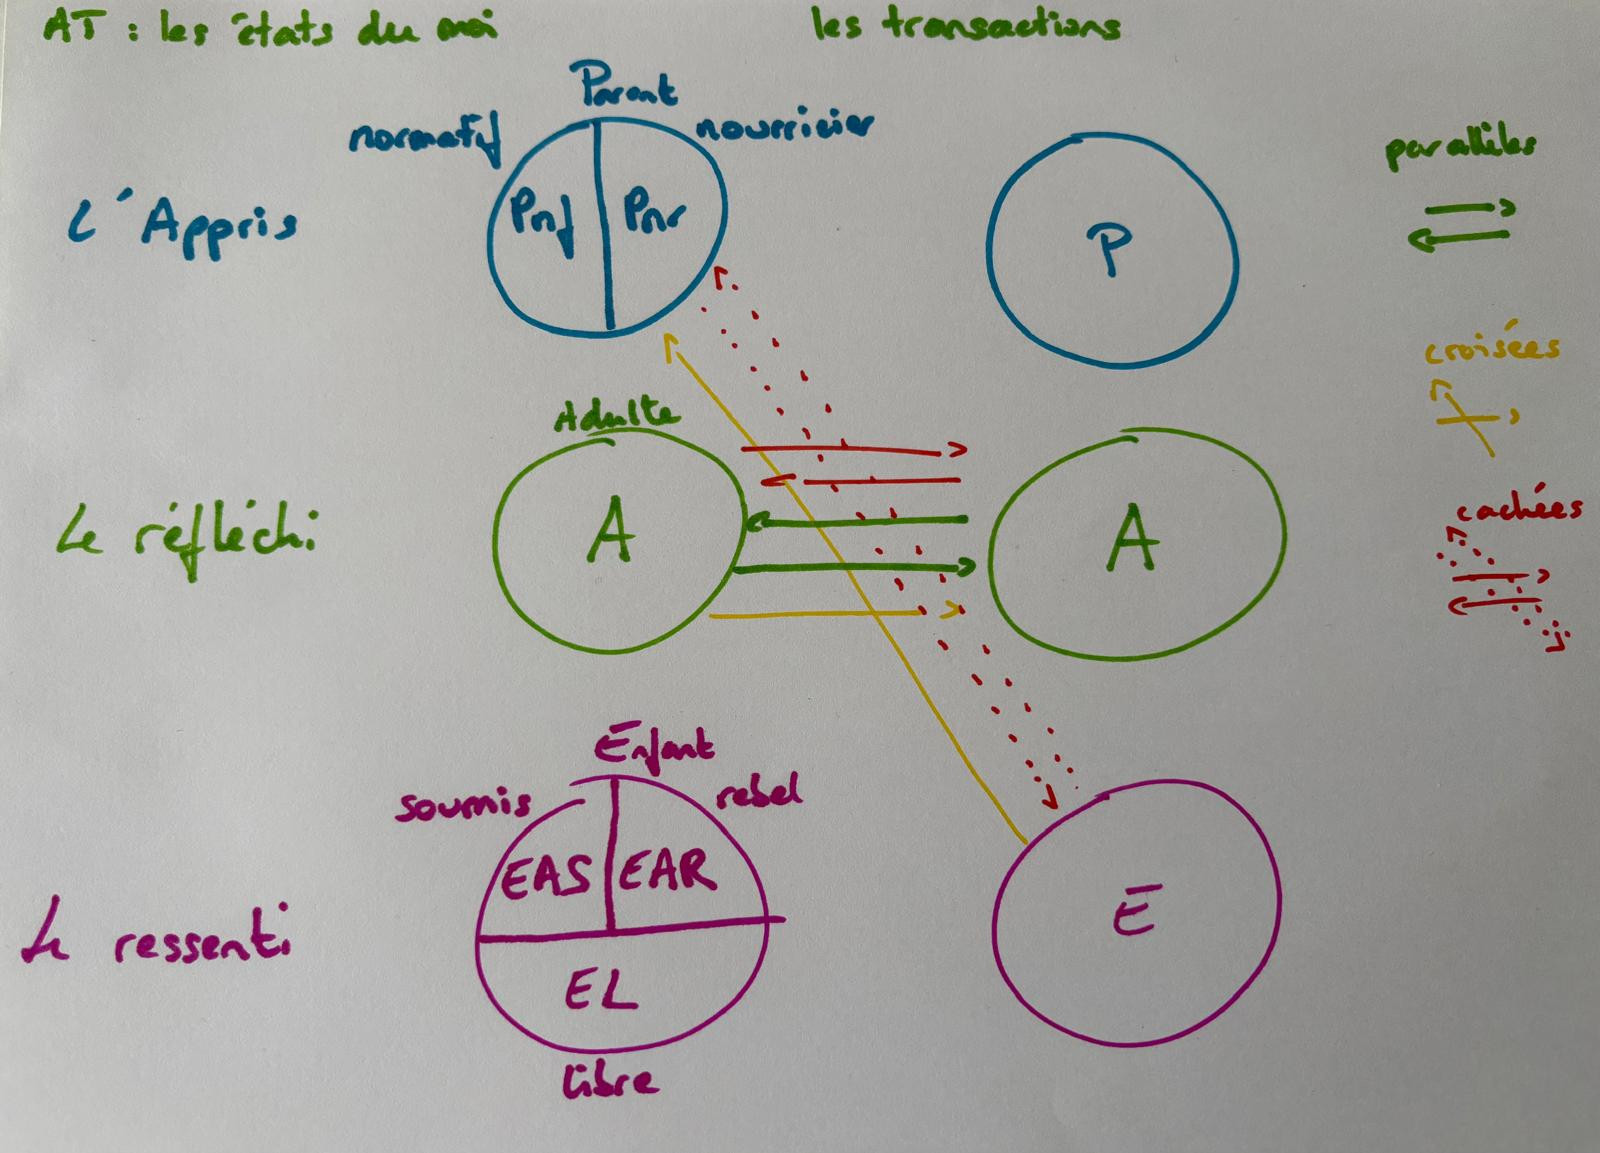 AT : les états du moi
les transactions
Parent
normatif
nourricier
parallèles
L'Appris
Pnf
Pnr
P
croisées
Adulte
Le réfléchi
A
A
cachées
Enfant
soumis
rebel
EAS
EAR
Le ressenti
E
EL
libre